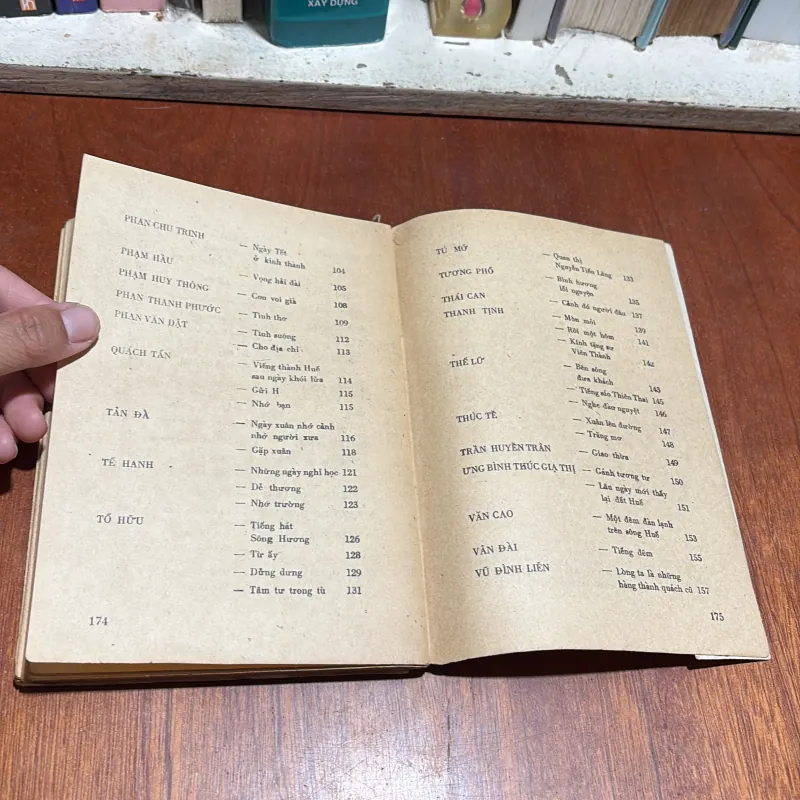 XÂY DỰNG
PHAN CHU TRINH — Ngày Tết
ở kinh thành 104
PHẠM HẦU — Vọng hải đài 105
PHẠM HUY THÔNG — Con voi già 108
PHAN THANH PHƯỚC — Tình thơ 109
PHAN VĂN DẬT — Tình suông 112
— Cho địa chỉ 113
QUÁCH TẤN — Viếng thành Huế
sau ngày khói lửa 114
— Gửi H 115
— Nhớ bạn 115
TẢN ĐÀ — Ngày xuân nhớ cảnh
nhớ người xưa 116
— Gặp xuân 118
TẾ HANH — Những ngày nghỉ học 121
— Dễ thương 122
— Nhớ trường 123
TỐ HỮU — Tiếng hát
Sông Hương 126
— Từ ấy 128
— Dửng dưng 129
— Tâm tư trong tù 131
174
TÚ MỠ — Quan thị
Nguyễn Tiến Lãng 133
TƯƠNG PHỐ — Bình hương
lỗi nguyện 135
THÁI CAN — Cảnh đó người đâu 137
THANH TỊNH — Mòn mỏi 139
— Rồi một hôm 141
— Kính tặng sư
Viên Thành 142
THẾ LỮ — Bên sông
đưa khách 143
— Tiếng sáo Thiên Thai 145
— Nghe đàn nguyệt 146
THÚC TỀ — Xuân lên đường 147
— Trăng mơ 148
TRẦN HUYỀN TRÂN — Giao thừa 149
ƯNG BÌNH THÚC GIẠ THỊ — Cảnh tương tư 150
— Lâu ngày mới thấy
lại đất Huế 151
VĂN CAO — Một đêm đàn lạnh
trên sông Huế 153
VÂN ĐÀI — Tiếng đêm 155
VŨ ĐÌNH LIÊN — Lòng ta là những
hàng thành quách cũ 157
175